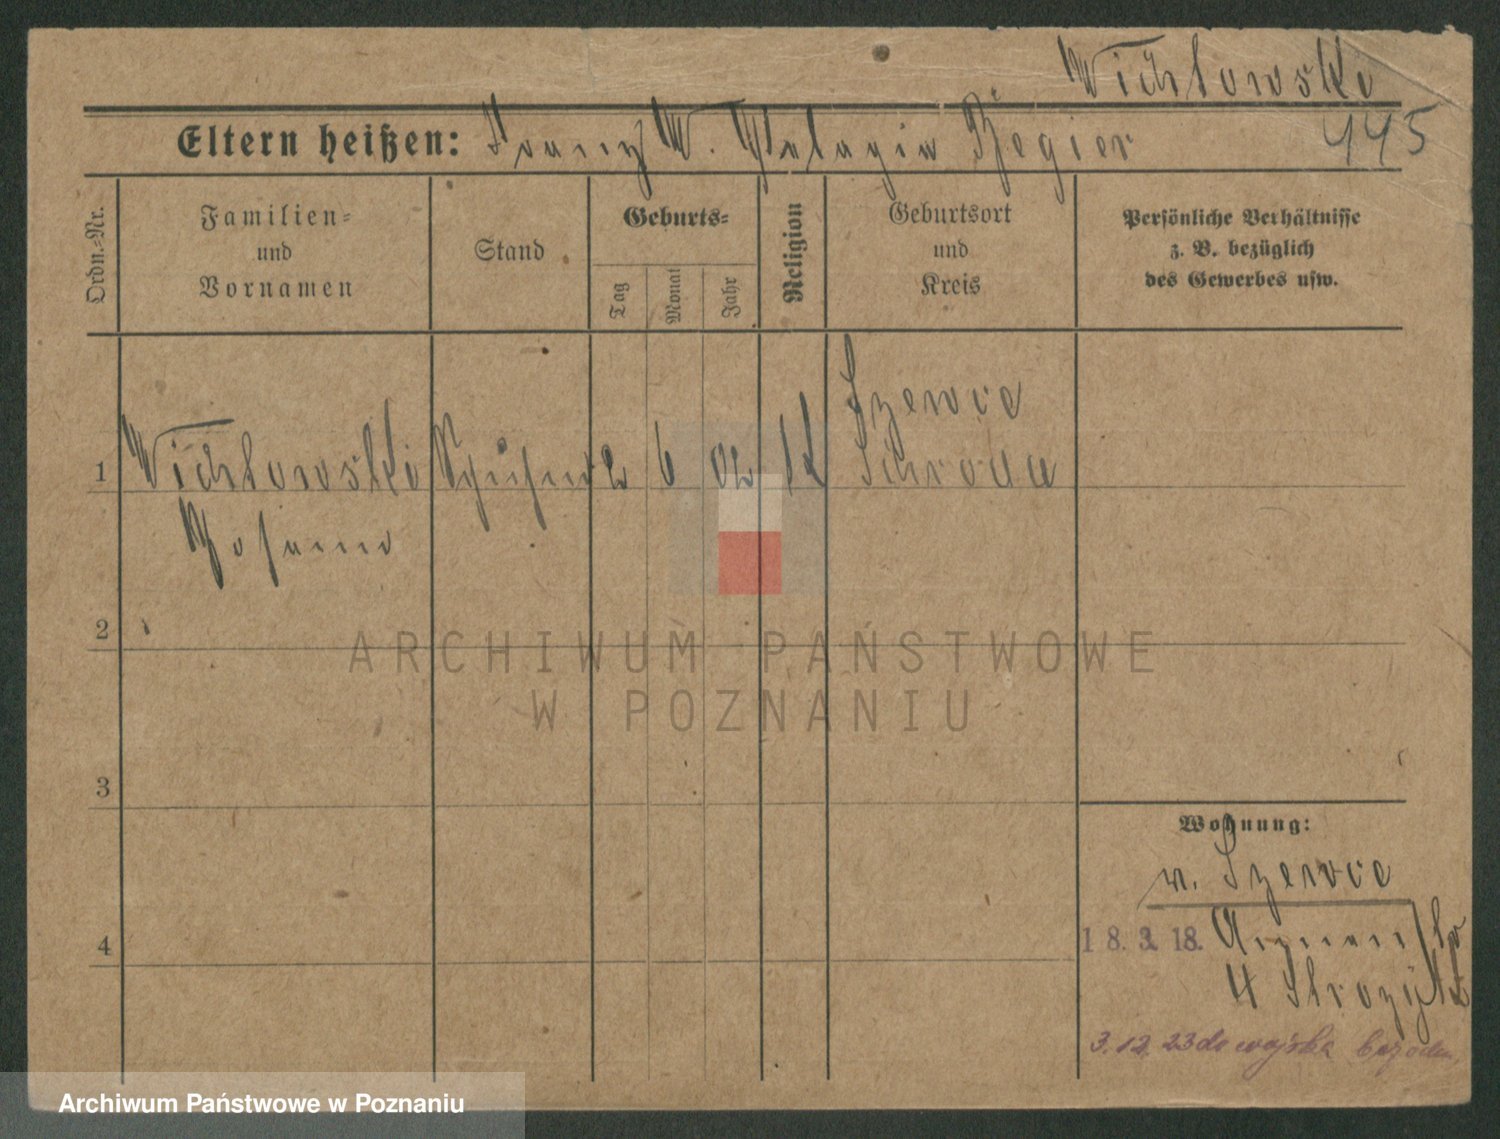 Wichlowski
Eltern heißen: Franz W. Pelagia Rzegier
445
Ordn.-Nr.
Familien-
und
Vornamen
Stand
Geburts-
Tag
Monat
Jahr
Religion
Geburtsort
und
Kreis
Persönliche Verhältnisse
z. B. bezüglich
des Gewerbes usw.
1
Wichlowski
2 6 02 K
Szewce
Schroda
Johann
2
ARCHIWUM PAŃSTWOWE
W POZNANIU
3
Wohnung:
v. Szewce
4
18. 3. 18.
4
3. 12. 23 do wojska
Archiwum Państwowe w Poznaniu